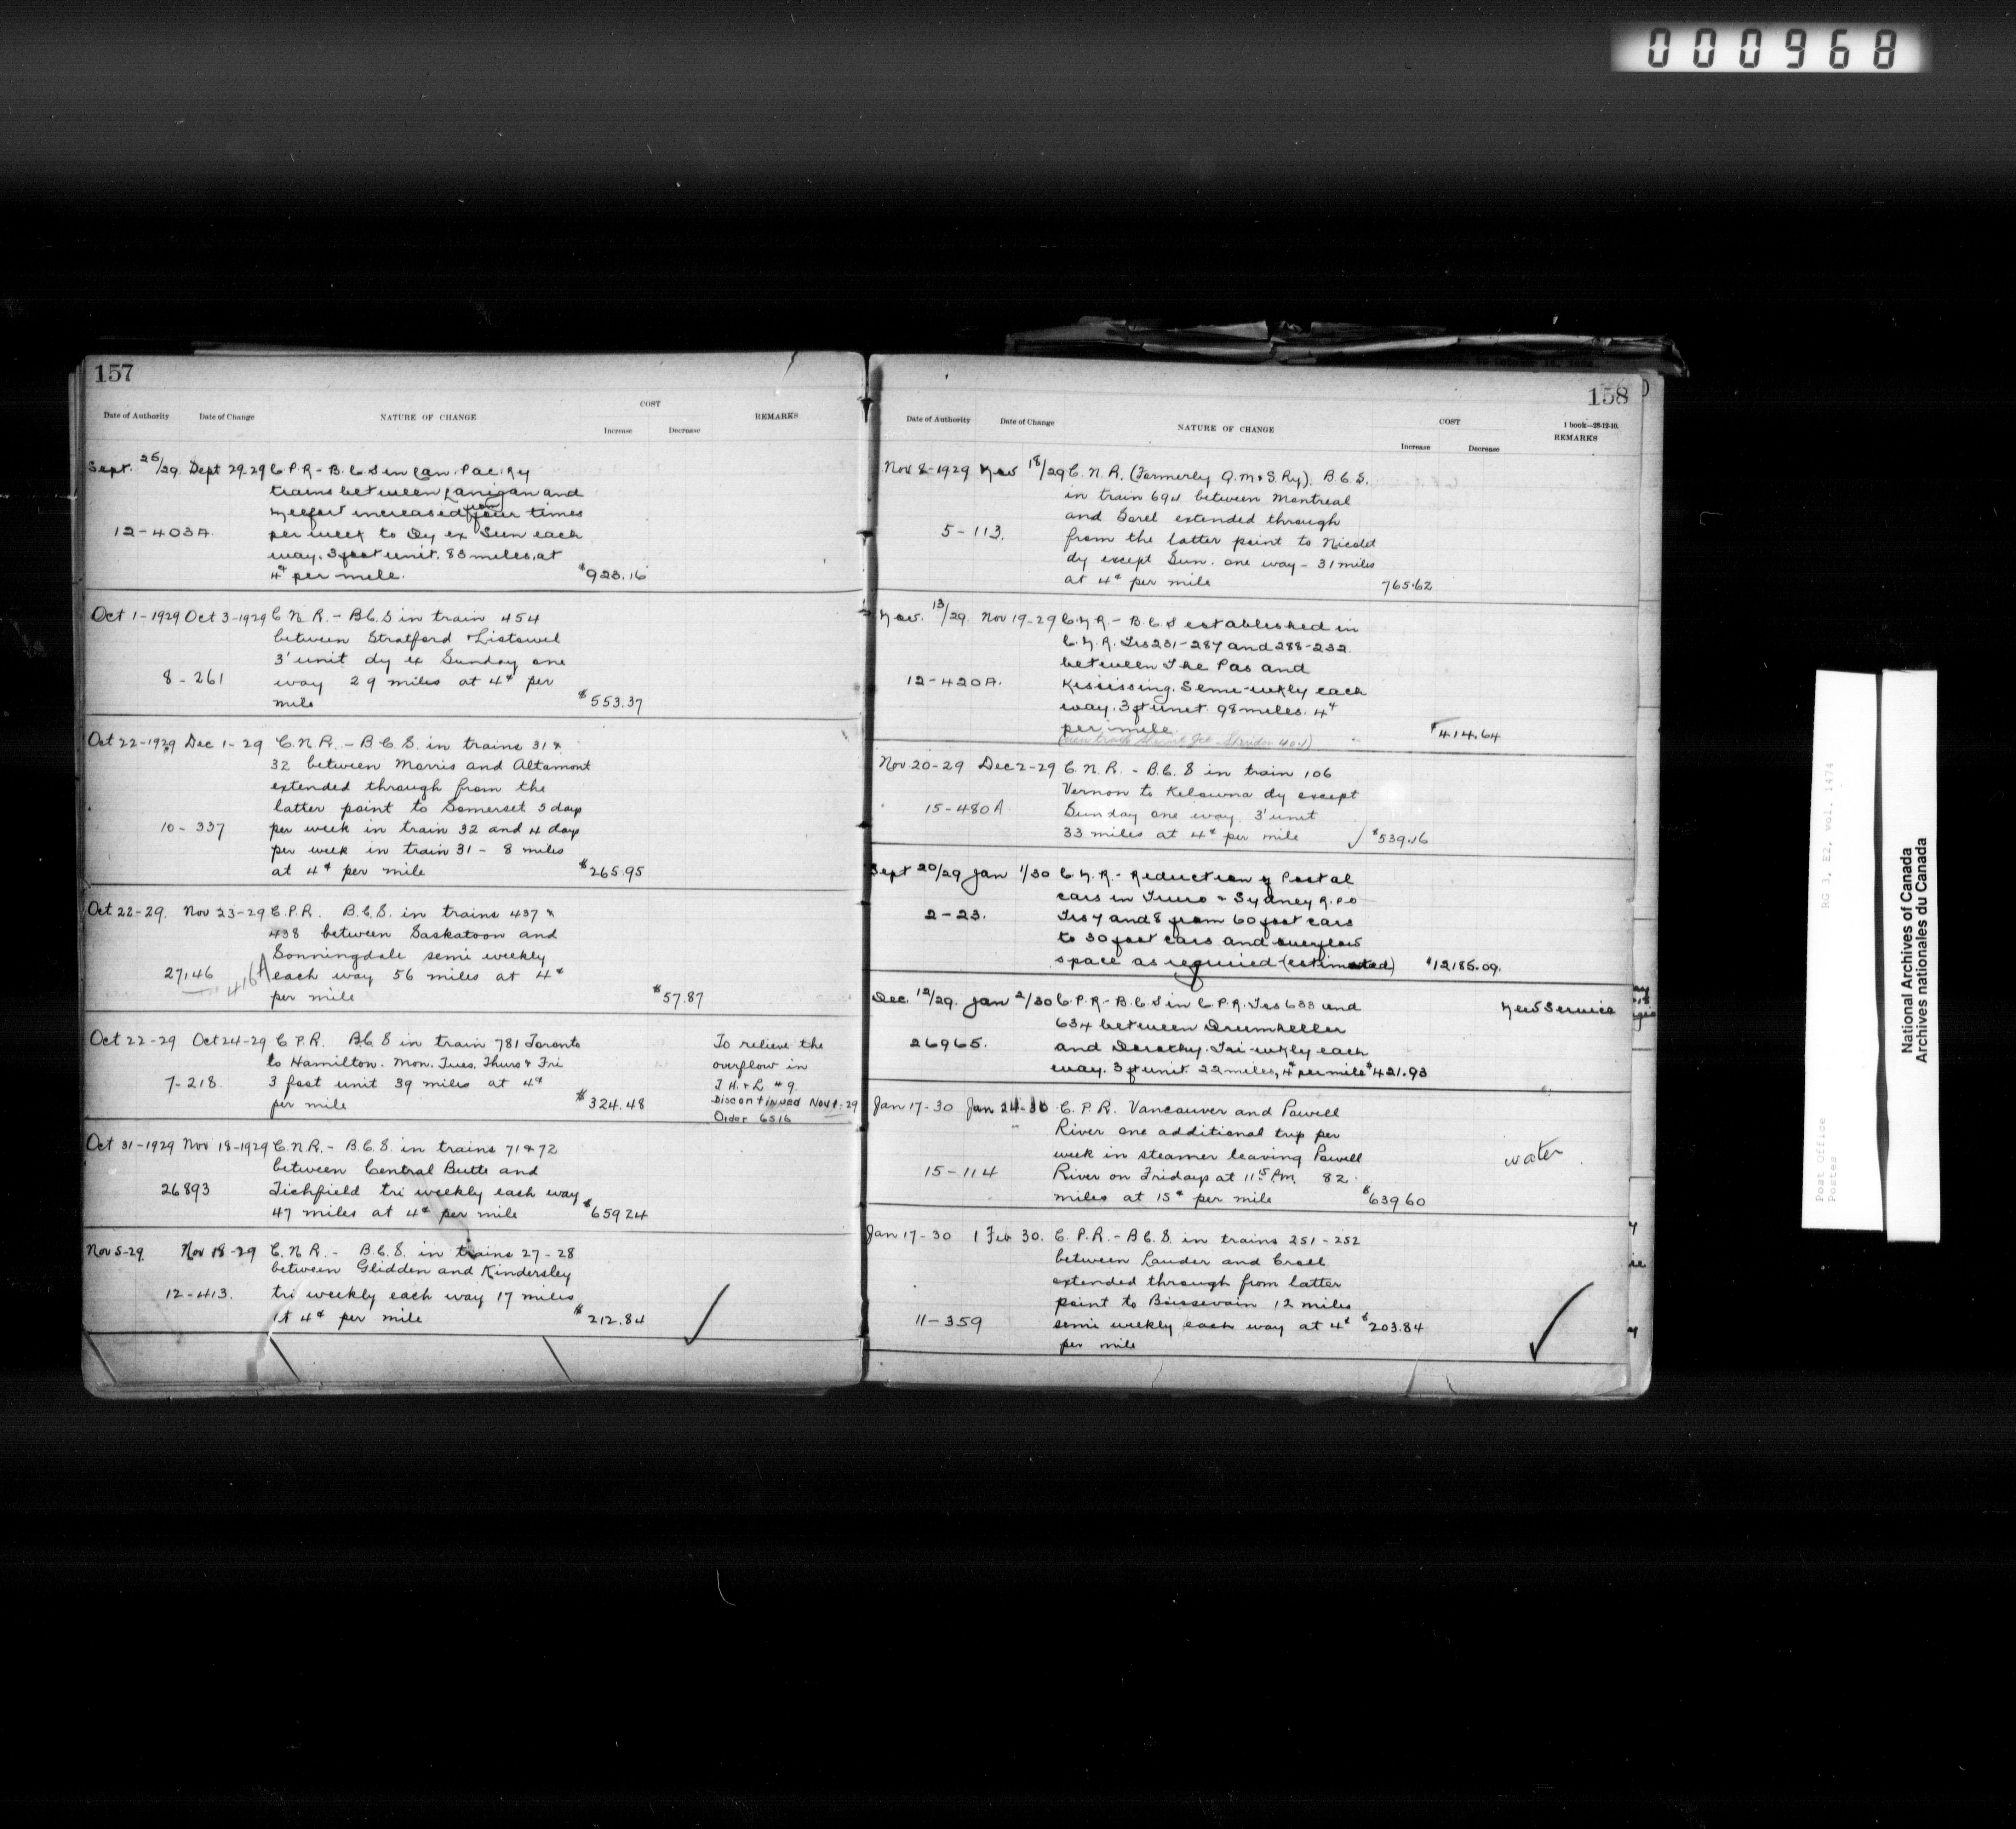 000968
157
Date of Authority Date of Change NATURE OF CHANGE COST REMARKS
Increase Decrease
Sept. 25/29. Sept 29.29 C P.R - B.C.S in Can. Pac. Ry
trains between Lanigan and
increased from four times
12-403A. per week to Dy ex Sun each
way. 3 foot unit. 83 miles, at
4¢ per mile. $923.16
Oct 1-1929 Oct 3-1929 C N. R. - B.C.S in train 454
between Stratford & Listowel
3' unit dy ex Sunday one
8-261 way 29 miles at 4¢ per
mile $553.37
Oct 22-1929 Dec 1-29 C.N.R. - B.C.S. in trains 31 &
32 between Morris and Altamont
extended through from the
latter point to Somerset 5 days
10-337 per week in train 32 and 4 days
per week in train 31 - 8 miles
at 4¢ per mile $265.95
Oct 22-29. Nov 23-29 C.P.R. B.C.S. in trains 437 &
438 between Saskatoon and
Sonningdale semi weekly
27146 416A each way 56 miles at 4¢
per mile $57.87
Oct 22-29 Oct 24-29 C P.R. B.C.S in train 781 Toronto To relieve the
to Hamilton. Mon. Tues. Thurs & Fri overflow in
7-218. 3 foot unit 39 miles at 4¢ T.H. & L #9.
per mile $324.48 Discontinued Nov 1-29
Order 6516
Oct 31-1929 Nov 18-1929 C.N.R. - B.C.S. in trains 71 & 72
between Central Butte and
26893 Tichfield tri weekly each way
47 miles at 4¢ per mile $659.24
Nov 5-29. Nov 18-29 C.N.R. - B.C.S. in trains 27-28
between Glidden and Kindersley
12-413. tri weekly each way 17 miles
at 4¢ per mile $212.84
158
Date of Authority Date of Change NATURE OF CHANGE COST 1 book-28-12-10.
REMARKS
Increase Decrease
Nov 8-1929 Nov 18/29 C.N.R. (Formerly Q.M. & S. Ry). B.C.S.
in train 694 between Montreal
and Sorel extended through
5-113. from the latter point to Nicolet
dy except Sun. one way - 31 miles
at 4¢ per mile 765.62
Nov. 13/29. Nov 19-29 C.N.R. - B.C.S established in
C.N.R. Trs 231-287 and 288-232.
between The Pas and
12-420A. Kississing. Semi-wkly each
way. 3 ft unit. 98 miles. 4¢
per mile. $414.64
Nov 20-29 Dec 2-29 C.N.R. - B.C.S in train 106
Vernon to Kelowna dy except
15-480A Sunday one way. 3' unit
33 miles at 4¢ per mile $539.16
Sept 20/29 Jan 1/30 C.N.R. - Reduction of Postal
cars in Truro & Sydney R.P.O
2-23. Trs 7 and 8 from 60 foot cars
to 30 foot cars and overflow
space as required (estimated) $12185.09.
Dec. 12/29. Jan 2/30 C.P.R - B.C.S in C.P.R. Trs 633 and New Service
634 between Drumheller
26965. and Dorothy. Tri-wkly each
way. 3 ft unit. 22 miles, 4¢ per mile $421.93
Jan 17-30 Jan 24-30 C.P.R. Vancouver and Powell
River one additional trip per
week in steamer leaving Powell water
15-114 River on Fridays at 11.15 P.M. 82
miles at 15¢ per mile $639.60
Jan 17-30 1 Feb 30. C.P.R. - B.C.S. in trains 251-252
between Lauder and Croll
extended through from latter
point to Boissevain 12 miles
11-359 semi weekly each way at 4¢ $203.84
per mile
Post Office RG 3, E2, vol. 1474
Postes
National Archives of Canada
Archives nationales du Canada